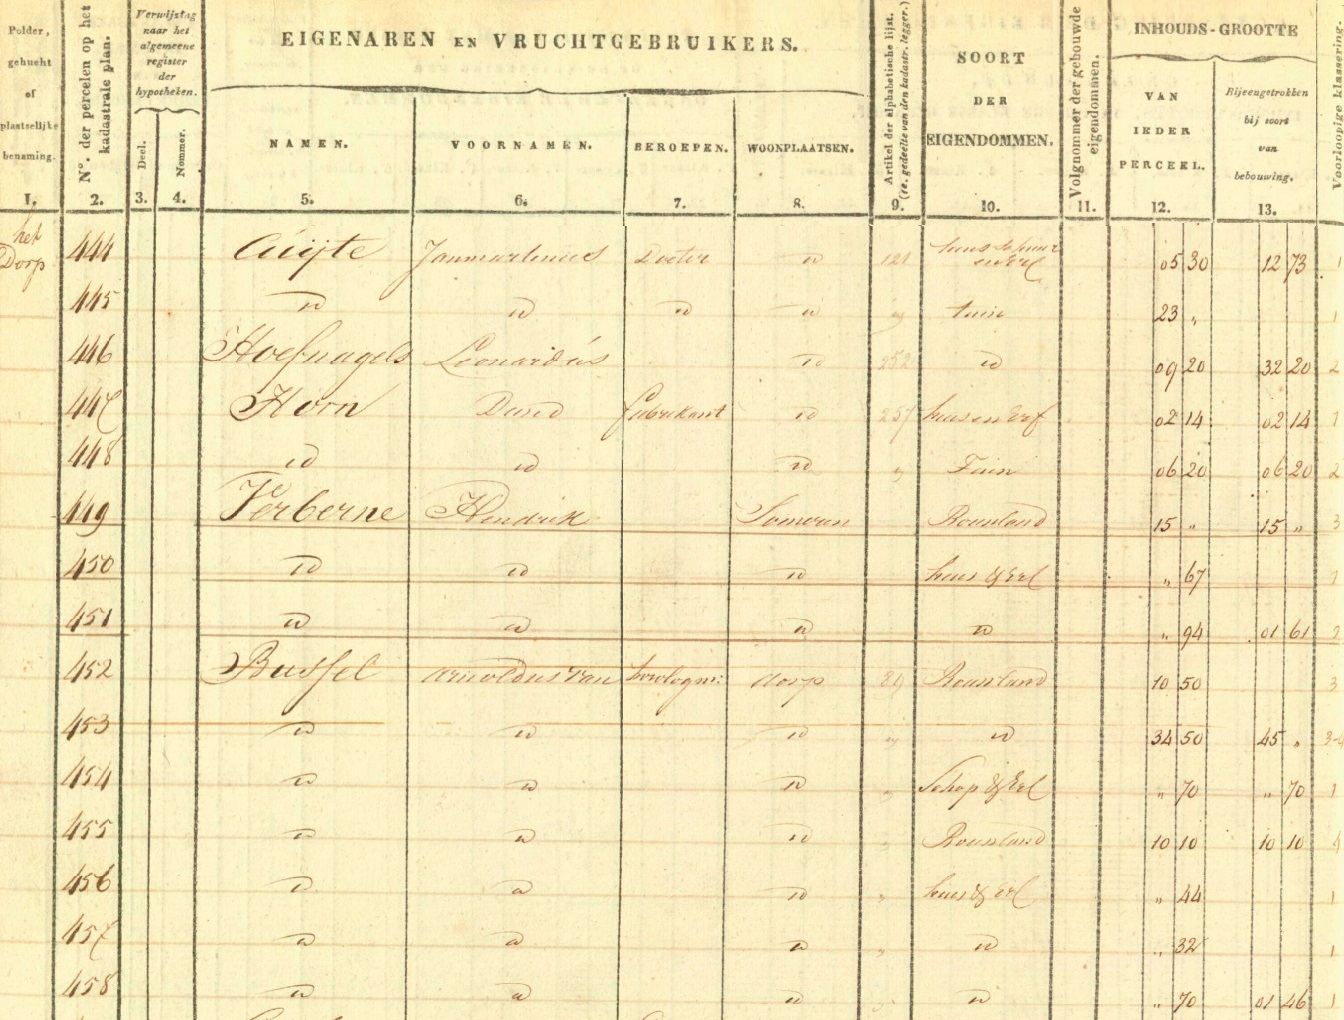 Polder, gehucht of plaatselijke benaming.
N°. der percelen op het kadastrale plan.
Verwijzing naar het algemeene register der hypotheken.
EIGENAREN EN VRUCHTGEBRUIKERS.
Artikel der alphabetische lijst. (1e. gedeelte van den kadastr. legger.)
SOORT DER EIGENDOMMEN.
Volgnommer der gebouwde eigendommen.
INHOUDS-GROOTTE
Voorloopige klassering.
Deel. Nommer. NAMEN. VOORNAMEN. BEROEPEN. WOONPLAATSEN. VAN IEDER PERCEEL. Bijeengetrokken bij soort van bebouwing.
1. 2. 3. 4. 5. 6. 7. 8. 9. 10. 11. 12. 13.
het Dorp 444 Cuijte Janmartinus Docter id 121 huis schuur en Erf 05 30 12 73 1
445 id id id id " tuin 23 " 1
446 Hoefnagels Leonardus id 252 id 09 20 32 20 2
447 Horn David fabrikant id 257 huis en Erf 02 14 02 14 1
448 id id id " Tuin 06 20 06 20 2
449 Verberne Hendrik Someren Bouwland 15 " 15 " 3
450 id id id huis & Erf " 67 1
451 id id id id " 94 01 61 2
452 Bussel Arnoldus van dorp 89 Bouwland 10 50 3
453 id id id " id 34 50 45 " 3-4
454 id id id " Schop & Erf " 70 " 70 1
455 id id id " Bouwland 10 10 10 10 4
456 id id id " huis & erf " 44 1
457 id id id " id " 32 1
458 id id id " id " 70 01 46 1